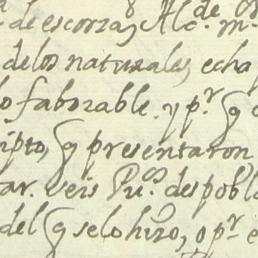 de escorza, Alc.de m.
de los naturales, echa
faborable. y p.r q
ipto, q presentaron
ar. veis Pu.os despobla
del q se lo hizo, o p.r e